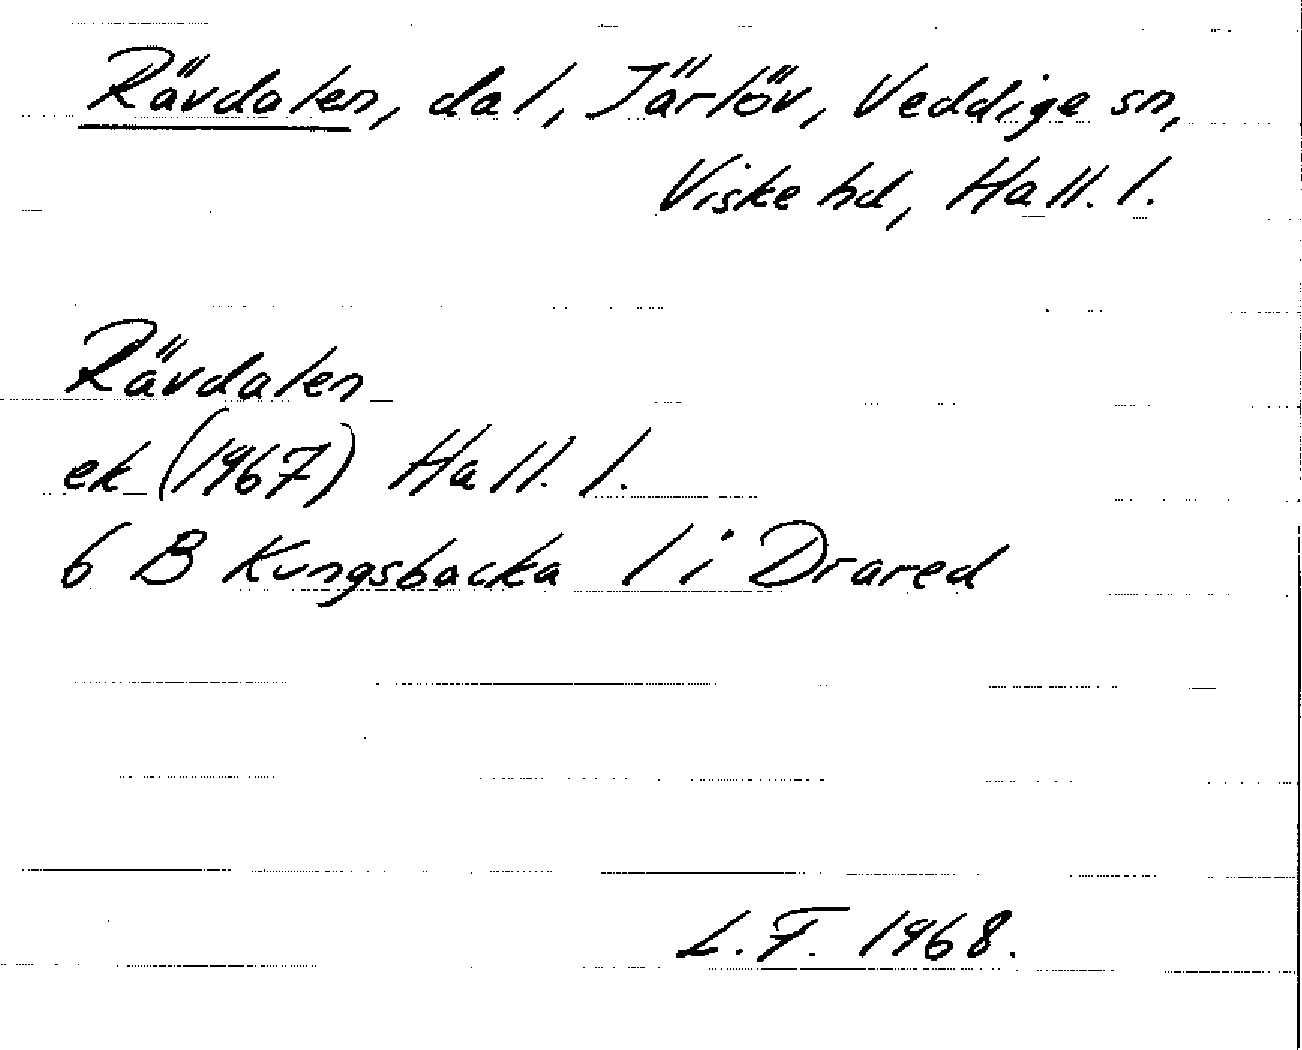 Rävdalen, dal, Järlöv, Veddige sn,
Viske hd, Hall. l.
Rävdalen
ek (1967) Hall. l.
6 B Kungsbacka l i Drared
L.F. 1968.